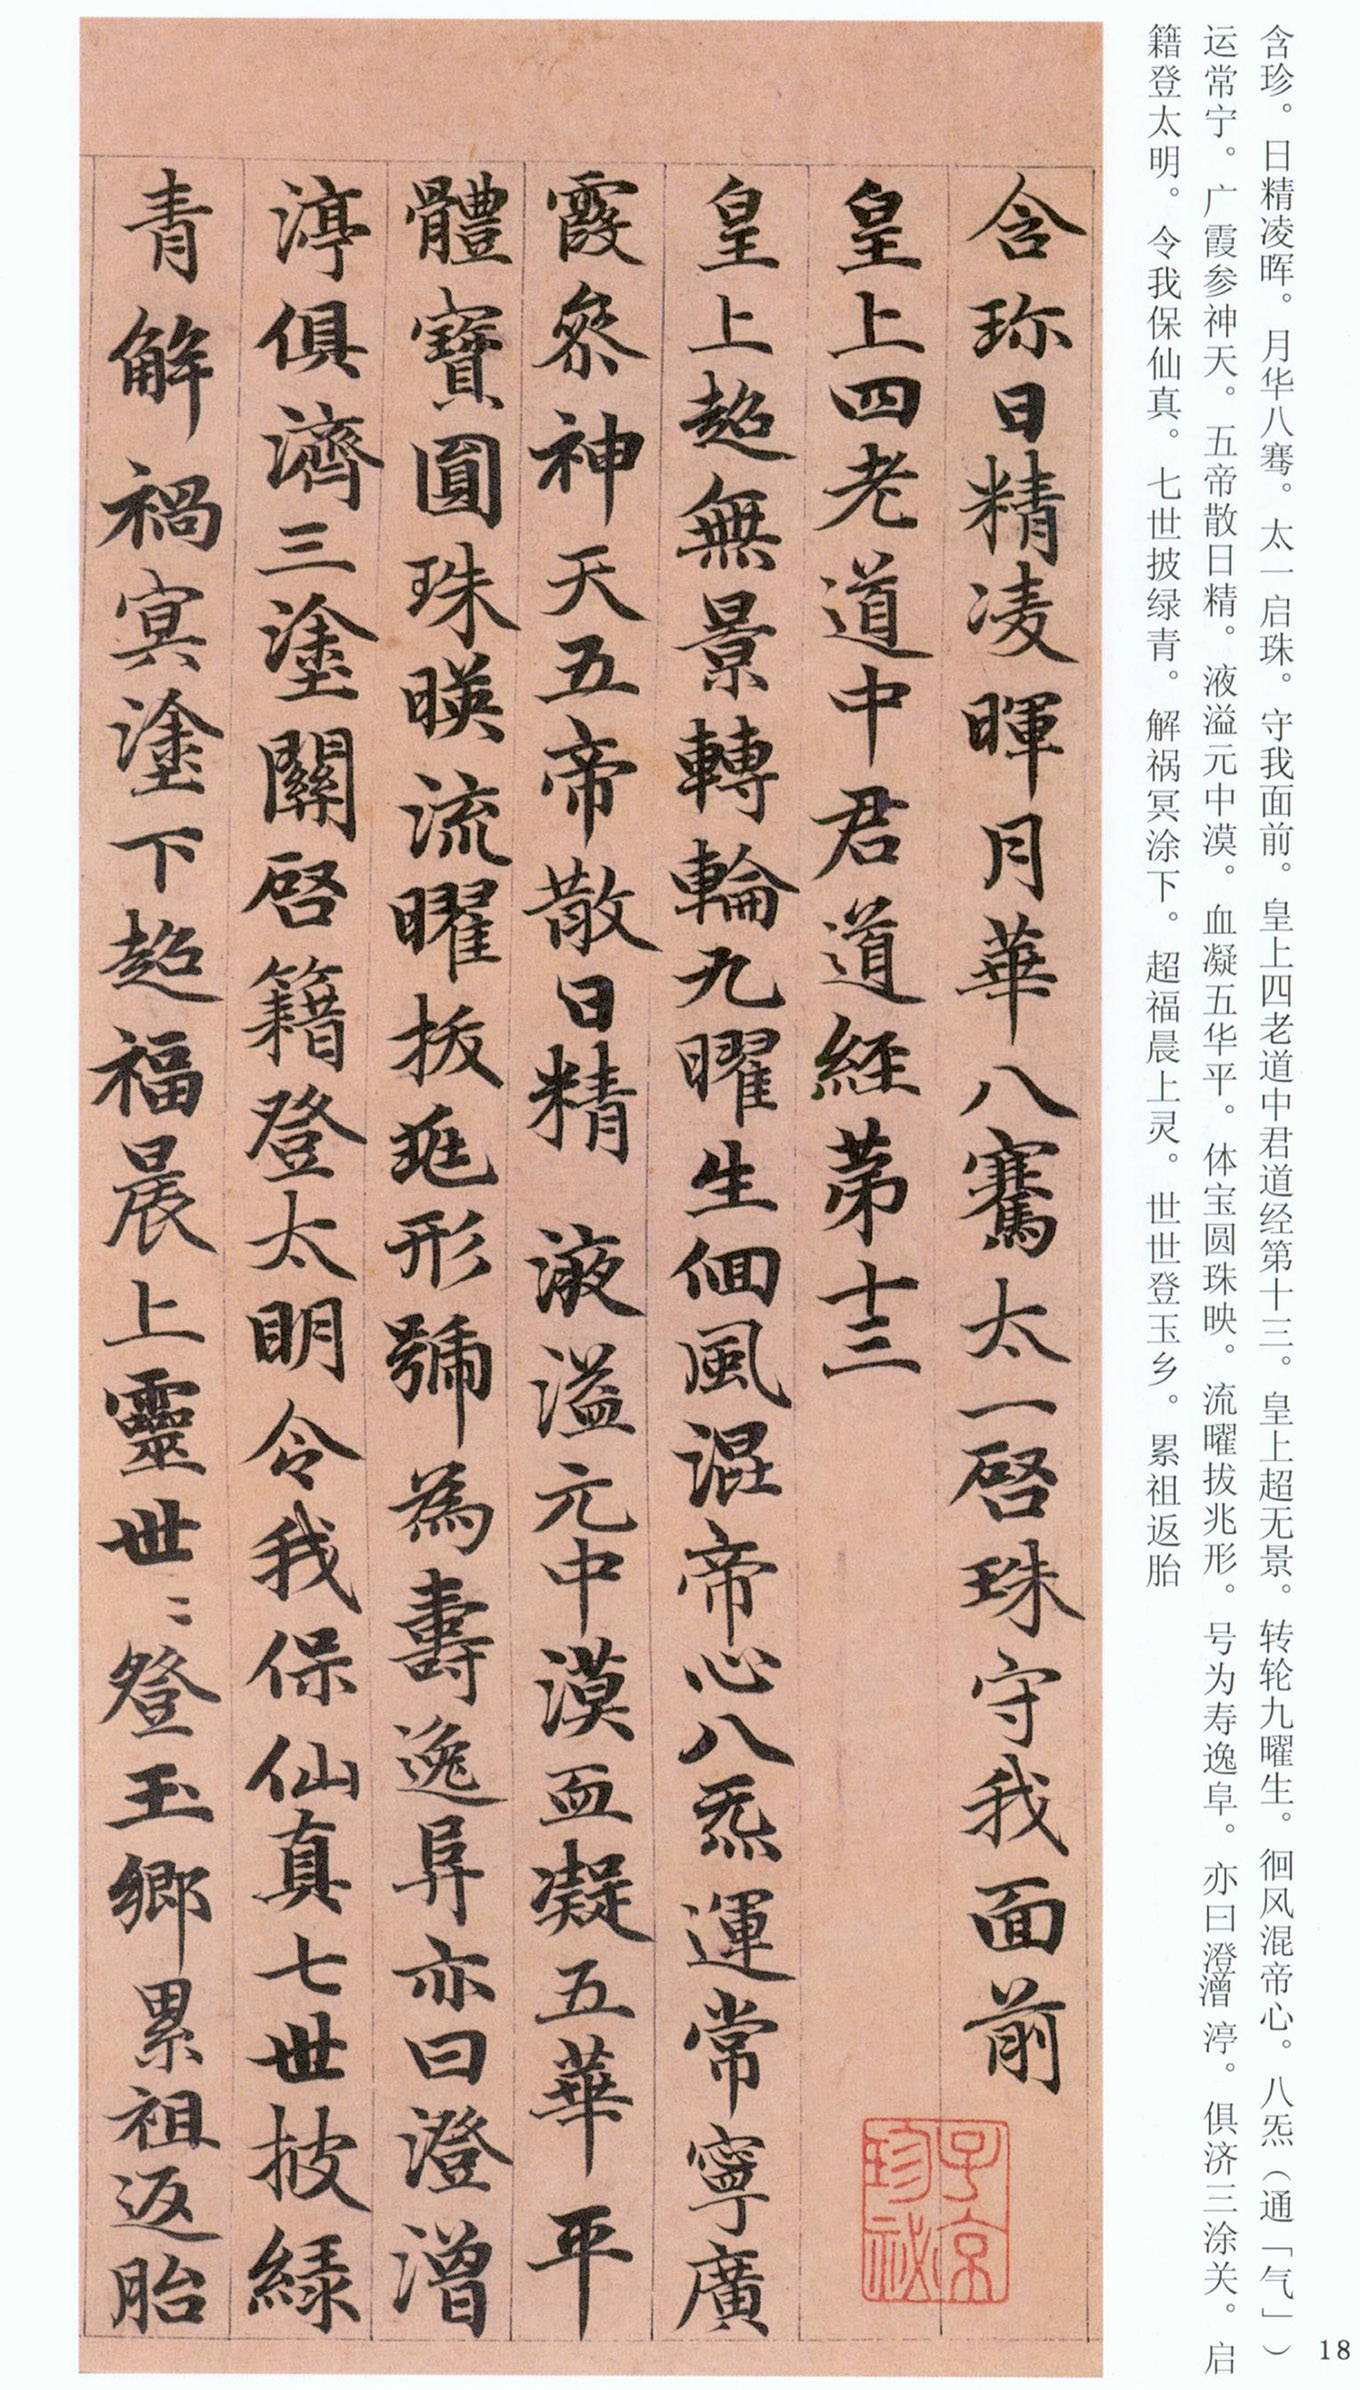 含珍。日精凌晖。月华八骞。太一启珠。守我面前。皇上四老道中君道经第十三。皇上超无景。转轮九曜生。徊风混帝心。八炁（通「气」）
运常宁。广霞参神天。五帝散日精。液溢元中漠。血凝五华平。体宝圆珠映。流曜拔兆形。号为寿逸阜。亦曰澄㵽渟。俱济三涂关。启
籍登太明。令我保仙真。七世披绿青。解祸冥涂下。超福晨上灵。世世登玉乡。累祖返胎
含珎日精凌暉月華八騫太一啓珠守我面前
皇上四老道中君道經苐十三
皇上超無景轉輪九曜生佪風混帝心八炁運常寧廣
霞叅神天五帝散日精液溢元中漠血凝五華平
體寶圓珠暎流曜拔兆形號為壽逸阜亦曰澄㵽
渟俱濟三塗關啓籍登太明令我保仙真七世披緑
青解禍冥塗下超福晨上靈世〻登玉鄉累祖返胎
子京
珍祕
18